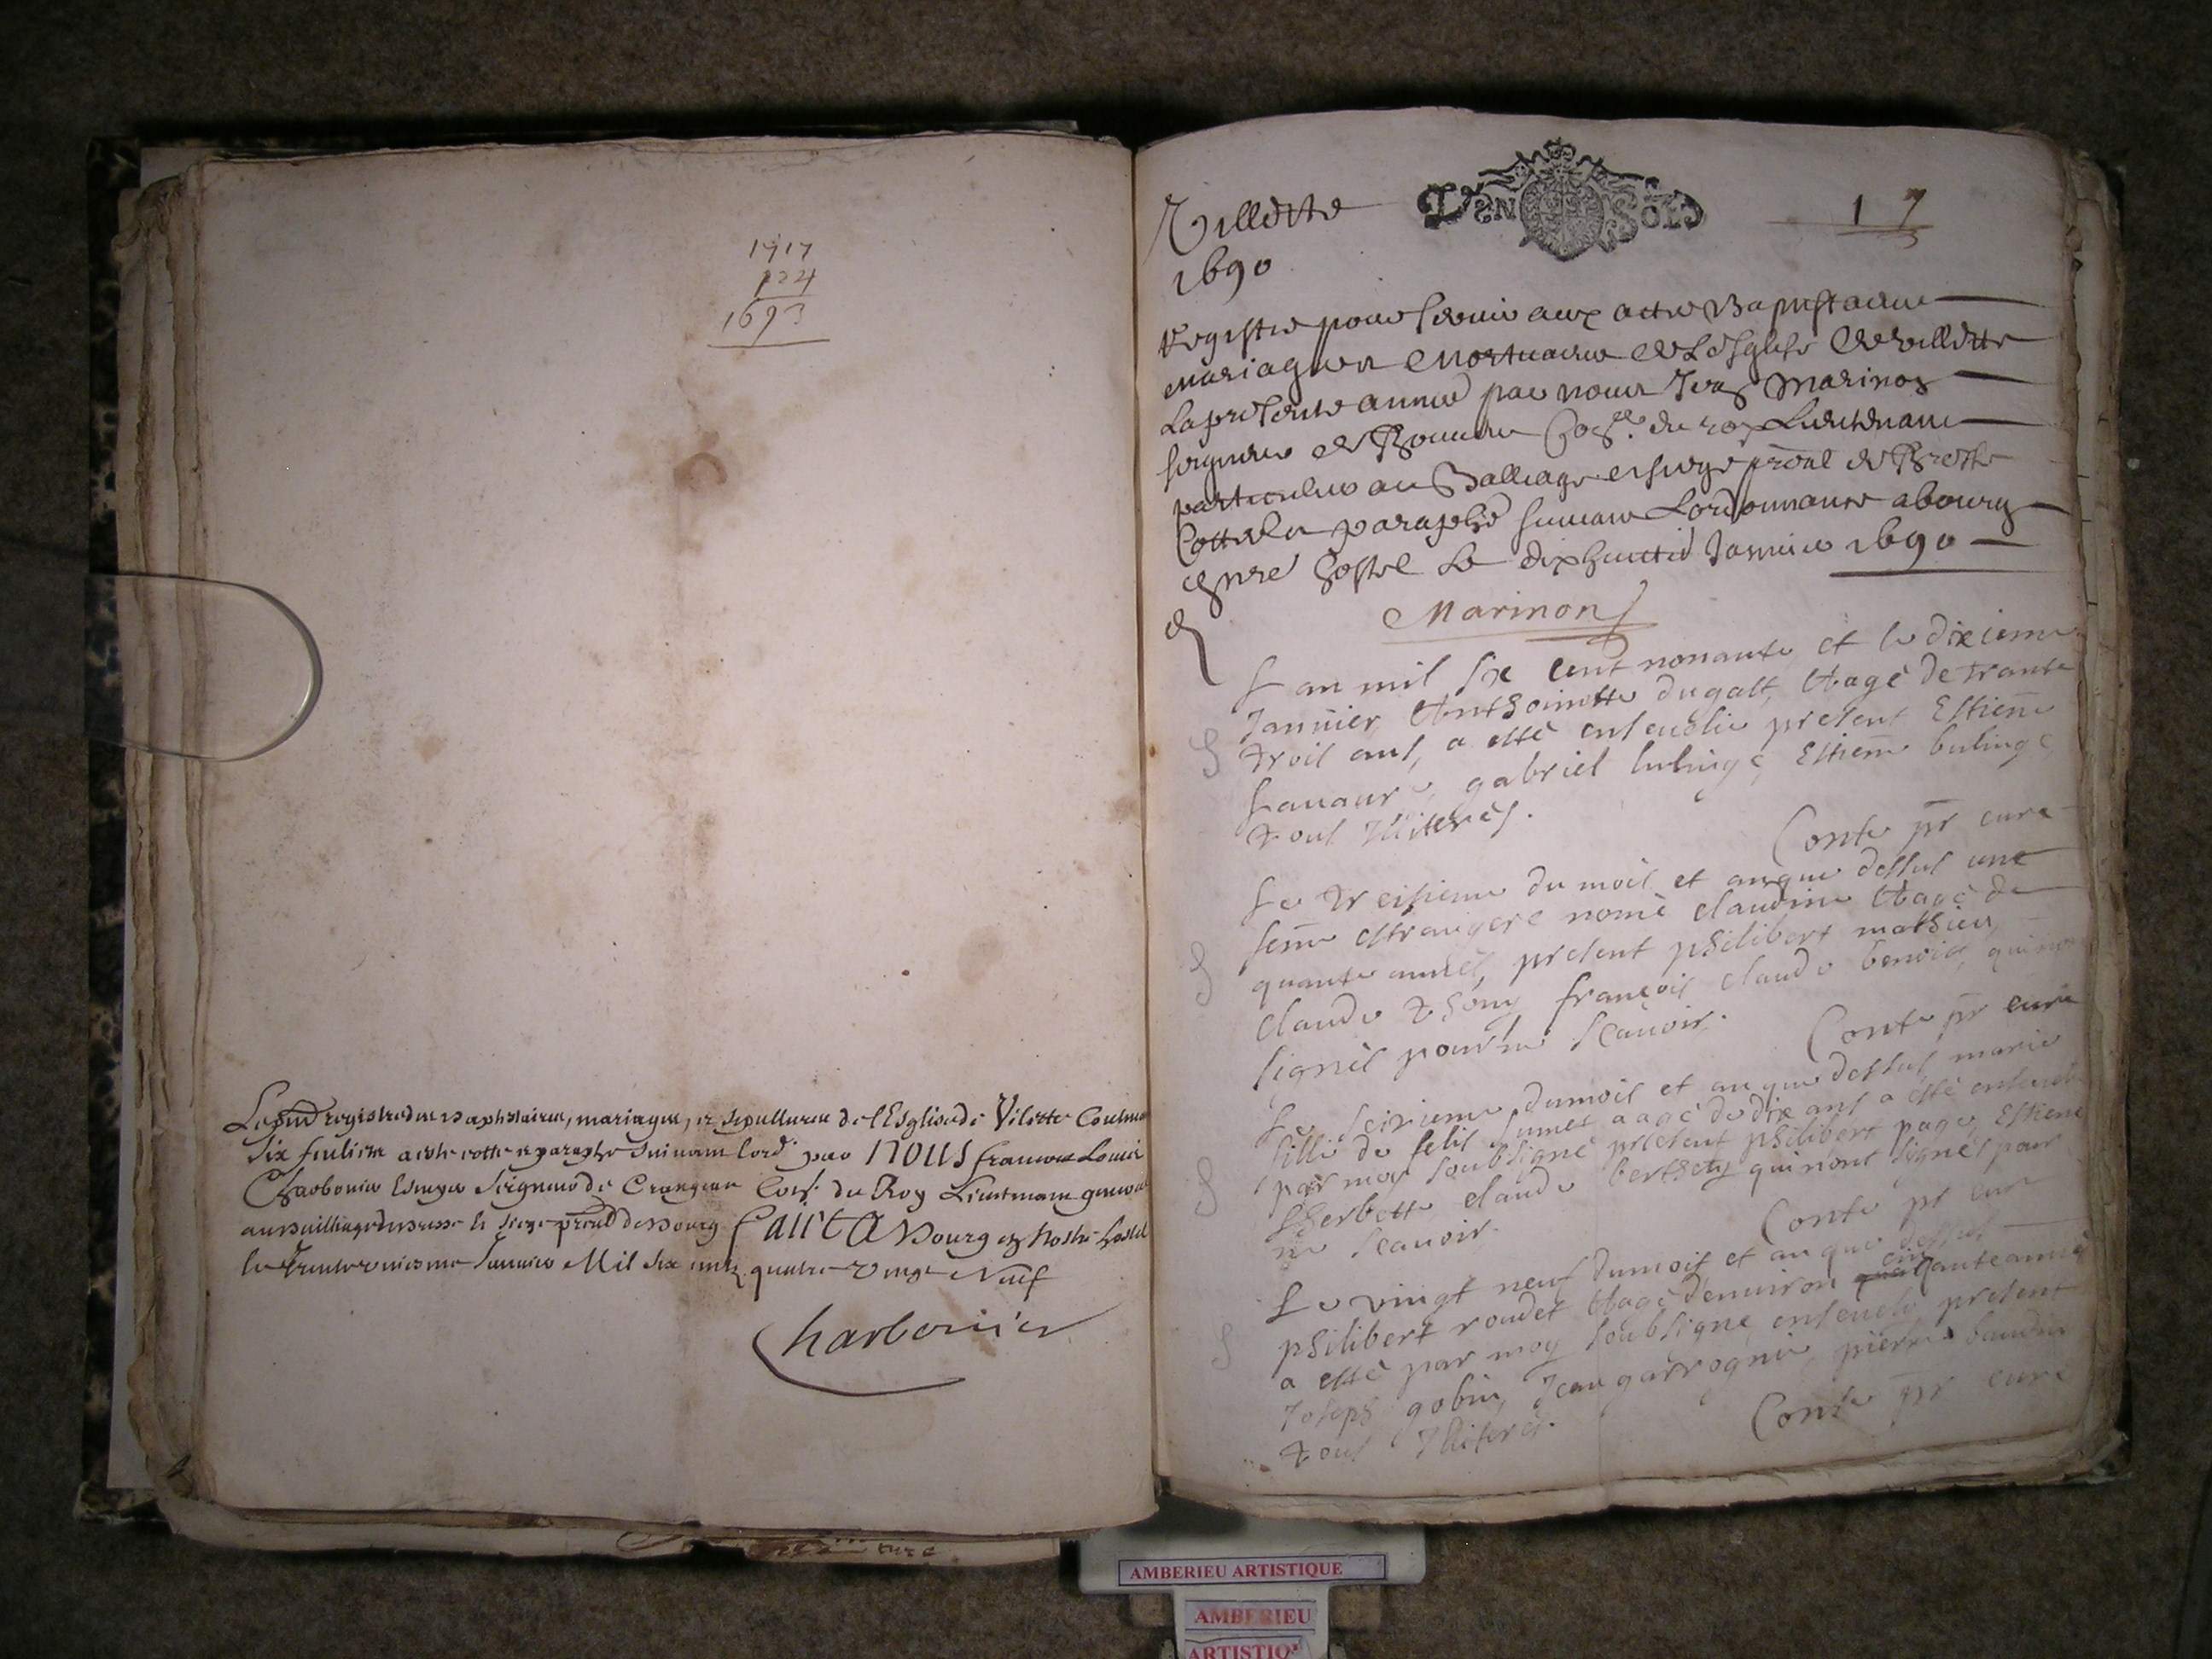 1717
124
1693
Le pnt registre des Baptistaires, mariages, et sepultures de l'Esglise de Vilette Contenant
six feulietz a esté cotte et paraphé suivant lord. par Nous francois Louis
Charbonier Escuyer Seigneur de Crangeac Cons. du Roy Lieutenant general
au Bailliage de Bresse et siege pntal de Bourg fait A Bourg en nostre hostel
le Trente uniesme Janvier Mil six centz quatre vingt Neuf
Charbonier
Villette
1690
VEN SOLS
17
Registre pour servir aux actes Baptistaires
Mariages et Mortuaires de L'Esglise de Villette
La presente année par nous Jean Marinon
seigneur de Cons. du roy Lieutenant
particulier au Balliage et siege pntal de Bresse
Cotte et paraphé suivant Lordonnance a bourg
en nre hostel Le dixhuictie Janvier 1690
Marinon
L an mil six cent nonante et le dixieme
Janvier Anthoinette dugast, Aagé de trante
trois ans, a esté ensevelie present Estiene
gabriel Estiene
tous Illiterés.
Conte pr curé
Le treisieme du mois et an que dessus une
feme estrangere nomé claudine Aagé de
quante années, present philibert mathieu
claude thony françois claude benoid, qui nont
signés pour ne scavoir.
Conte pr curé
Le seizieme du mois et an que dessus marie
fille de felis Jumet aagé de dix ans a esté ensevelie
par moy soubsigné present philibert page, Estiene
Lherbette claude berthety qui n'ont signés pour
ne scavoir.
Conte pr curé
Le vingt neuf du mois et an que dessus
philibert roudet Aagé denviron cinquante années
a esté par moy soubsigné enseveli present
Joseph gobin, Jean garrognié, pierre baudin
tous Illiterés.
Conte pr curé
AMBERIEU ARTISTIQUE
AMBERIEU
ARTISTIQ